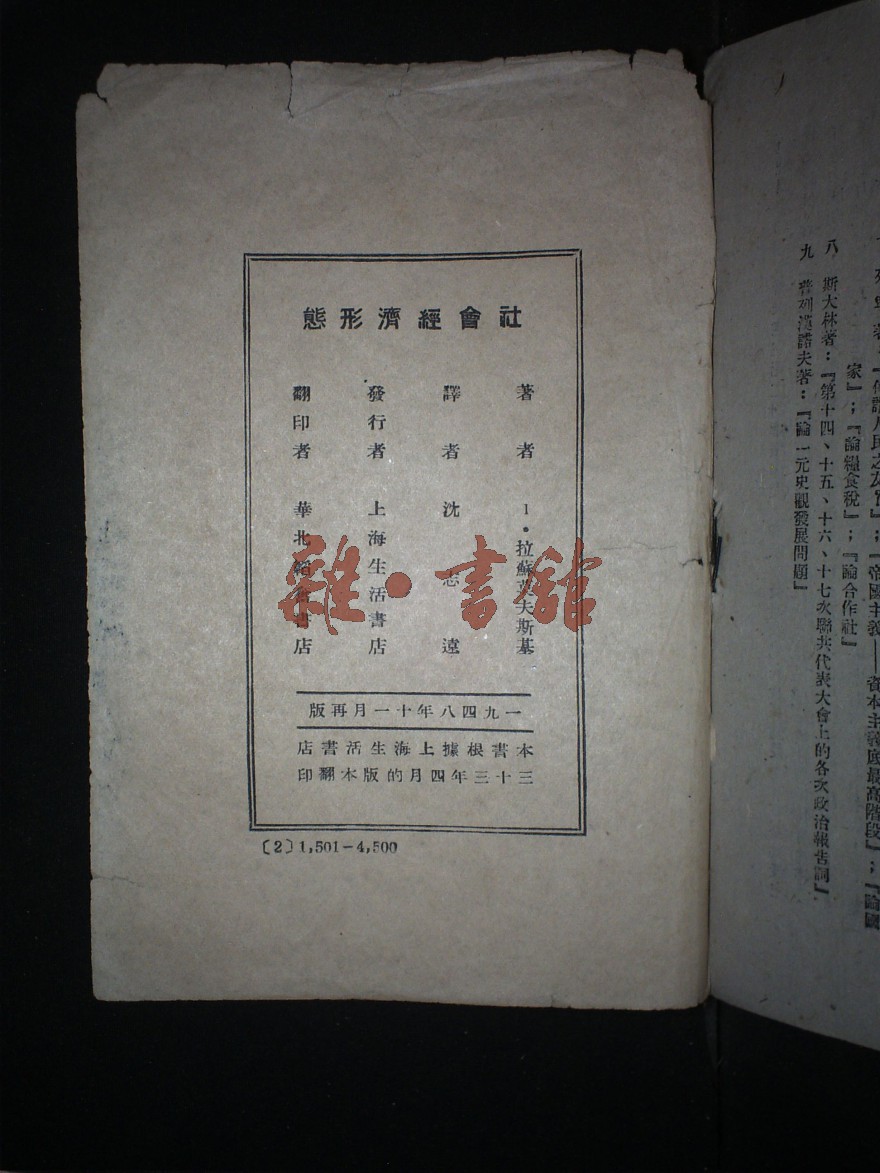 社會經濟形態
著者 I·拉蘇莫夫斯基
譯者 沈志遠
發行者 上海生活書店
翻印者 華北新書店
一九四八年十一月再版
本書根據上海生活書店
三十三年四月的版本翻印
〔2〕1,501-4,500
雜·書館
家』；『論糧食稅』；『論合作社』
八 斯大林著：『第十四、十五、十六、十七次聯共代表大會上的各次政治報告詞』
九 普列漢諾夫著：『論一元史觀發展問題』